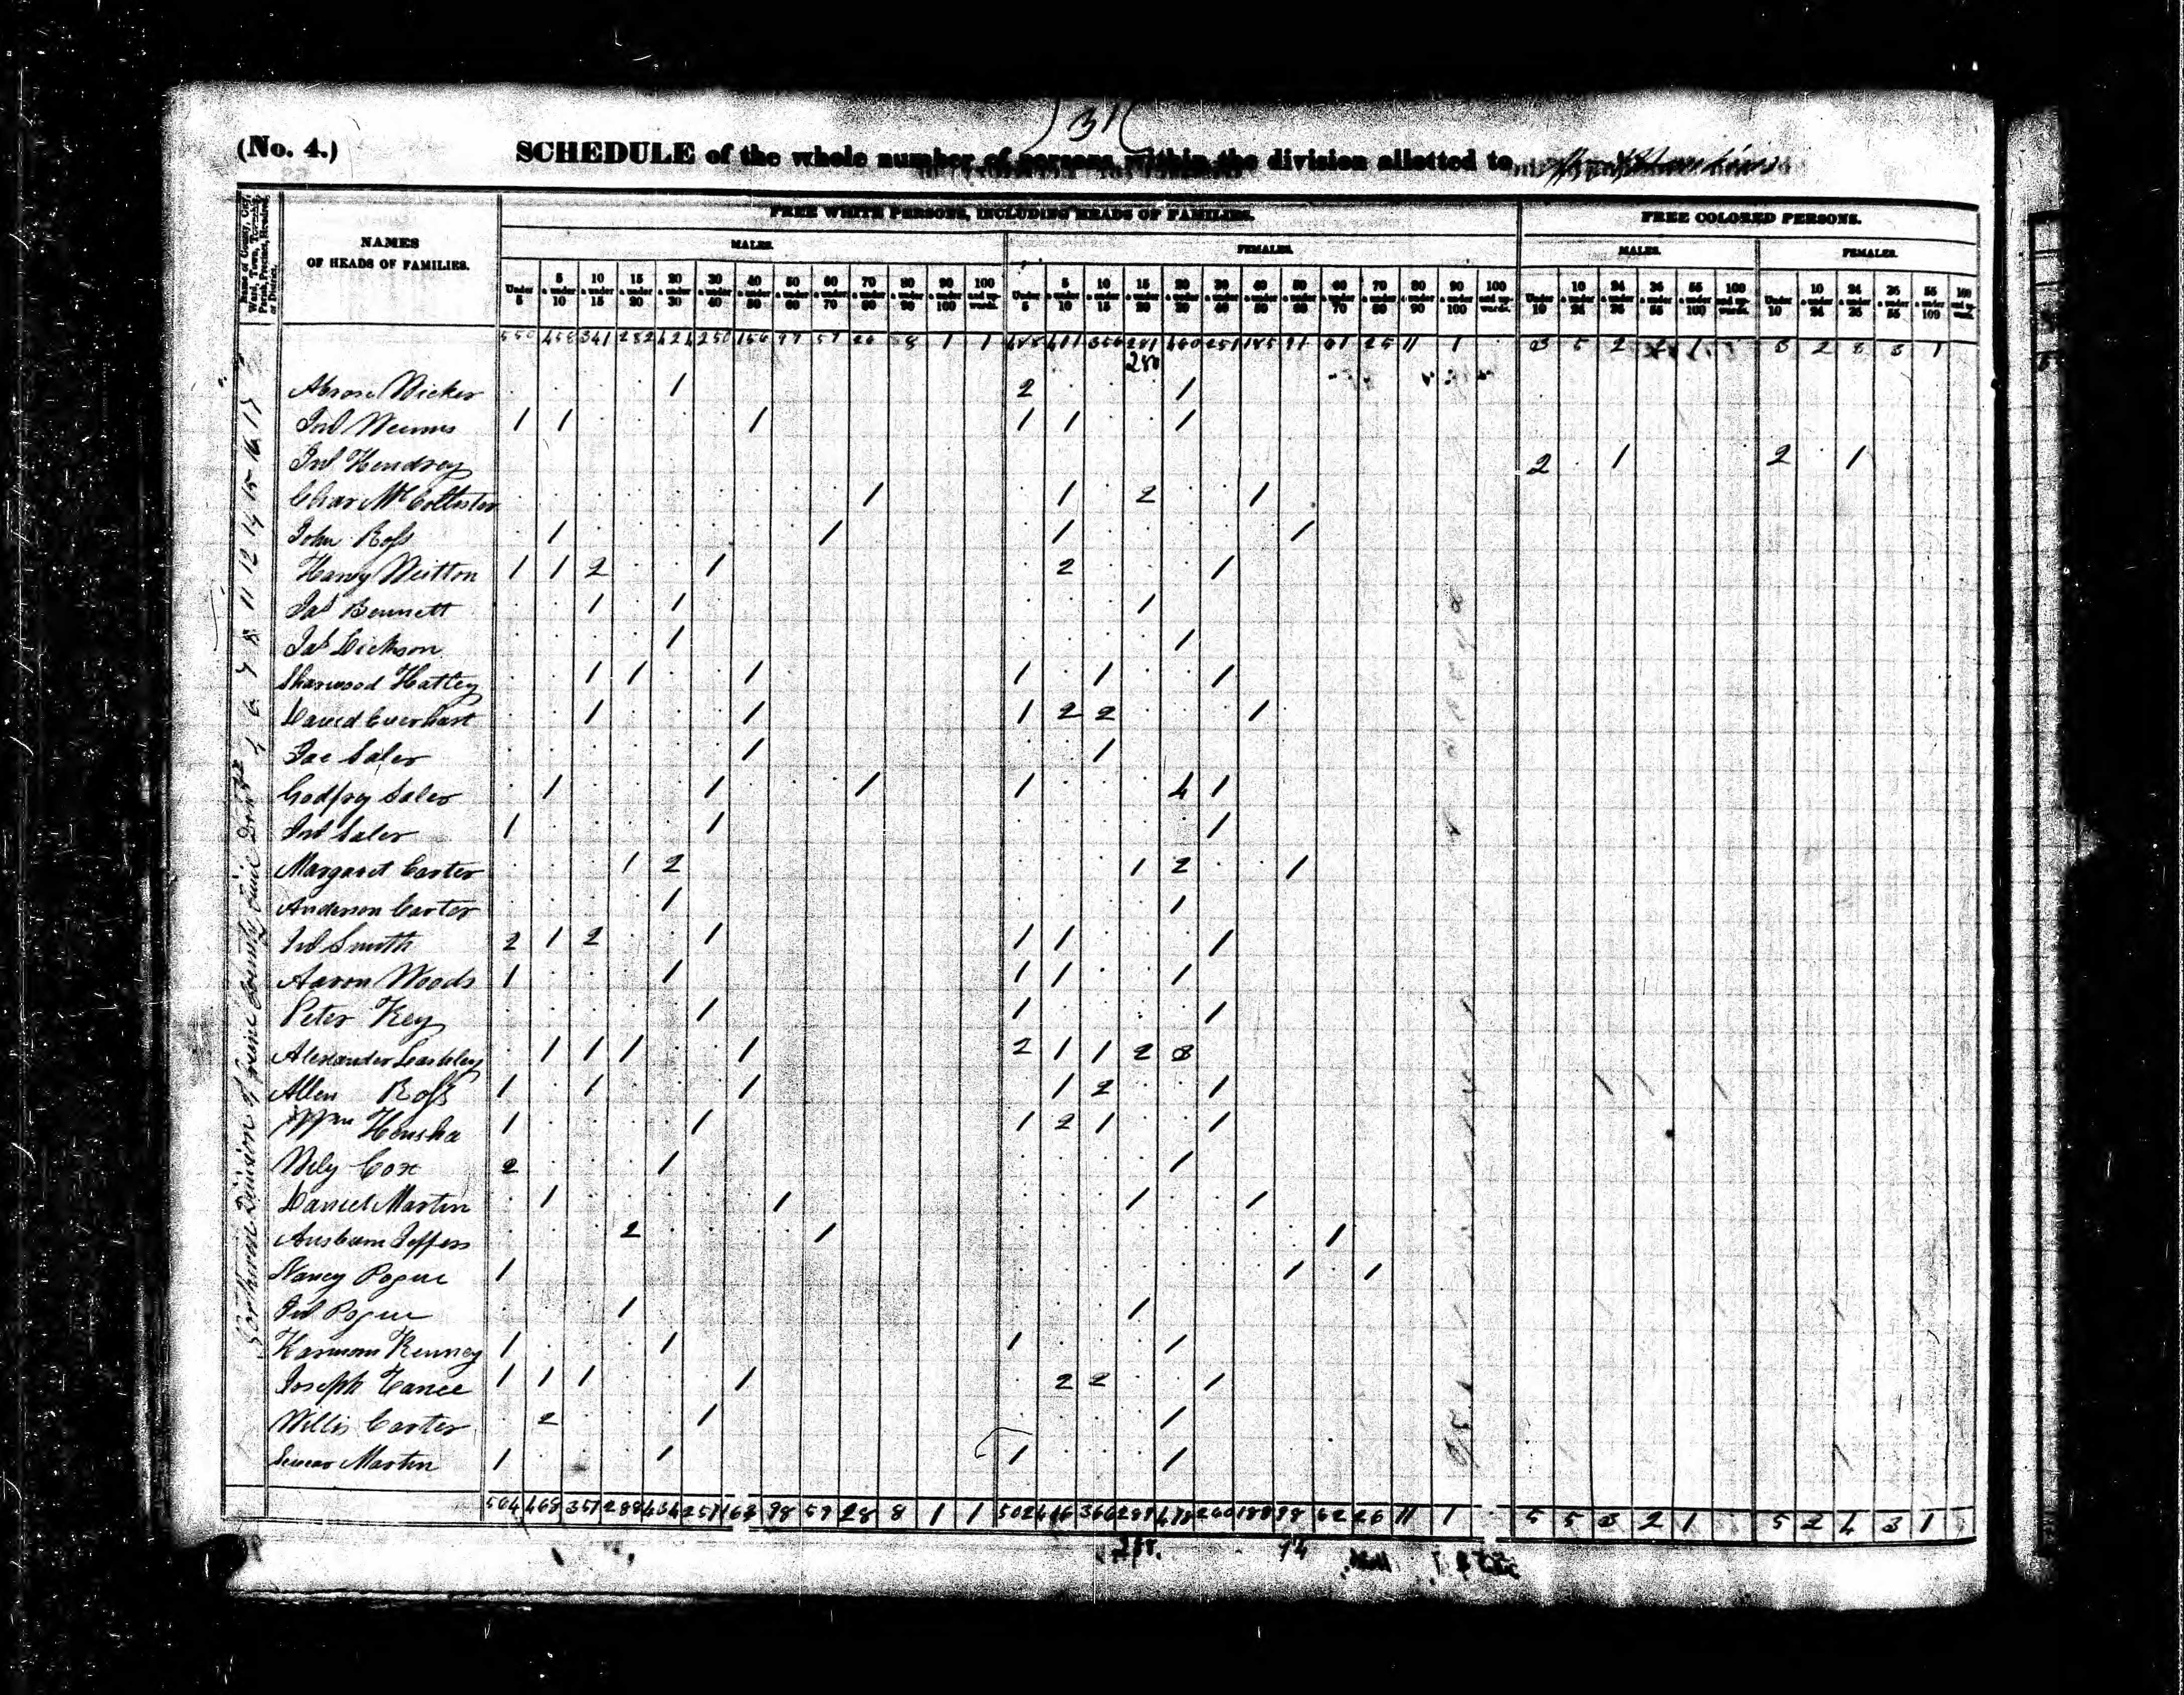 31
(No. 4.) SCHEDULE of the whole number of persons within the division allotted to
Name of County, City, Ward, Town, Township, Parish, Precinct, Hundred, or District.
NAMES
OF HEADS OF FAMILIES.
FREE WHITE PERSONS, INCLUDING HEADS OF FAMILIES.
FREE COLORED PERSONS.
MALES. FEMALES. MALES. FEMALES.
Under 5 | 5 & under 10 | 10 & under 15 | 15 & under 20 | 20 & under 30 | 30 & under 40 | 40 & under 50 | 50 & under 60 | 60 & under 70 | 70 & under 80 | 80 & under 90 | 90 & under 100 | 100 and upwards.
Under 5 | 5 & under 10 | 10 & under 15 | 15 & under 20 | 20 & under 30 | 30 & under 40 | 40 & under 50 | 50 & under 60 | 60 & under 70 | 70 & under 80 | 80 & under 90 | 90 & under 100 | 100 and upwards.
Under 10 | 10 & under 24 | 24 & under 36 | 36 & under 55 | 55 & under 100 | 100 and upwards.
Under 10 | 10 & under 24 | 24 & under 36 | 36 & under 55 | 55 & under 100 | 100 and upwards.
550 458 341 282 424 250 156 97 57 26 8 1 1 488 401 356 281 460 251 185 91 61 25 11 1 3 5 2 2 1 3 2 3 3 1
280
Wicker 1 2 1
Jno Weems 1 1 1 1 1 1
Jno Hendrey 2 1 2 1
Char McCollister 1 1 2 1
John Ross 1 1 1 1
Harvy Witton 1 1 2 1 2 1
Jas Bennett 1 1 1
Jas Dickson 1 1
Sharwood Hatley 1 1 1 1 1 1
David Everhart 1 1 1 2 2 1
Jac Saler 1 1
Godfrey Saler 1 1 1 1 4 1
Jno Saler 1 1 1
Margaret Carter 1 2 1 2 1
Anderson Carter 1 1
Jno Smith 2 1 2 1 1 1 1
Aaron Woods 1 1 1 1 1
Peter Key 1 1 1
Alexander 1 1 1 1 2 1 1 2
Allen Ross 1 1 1 1 2 1
Wm Hensha 1 1 1 2 1 1
Wily Cox 2 1 1
Daniel Martin 1 1 1 1
Jeffers 2 1 1
Nancy Pogue 1 1 1
Jno Pogue 1 1
Harmon Kenney 1 1 1 1
Joseph Vance 1 1 1 1 2 2 1
Willis Carter 2 1 1
Martin 1 1 1 1
564 468 351 288 434 257 163 98 59 28 8 1 1 502 416 366 289 478 260 188 98 62 26 11 1 5 5 3 2 1 5 2 4 3 1
Northern Division of County Civil Dist
4 6 7 8 11 12 14 15 16 17